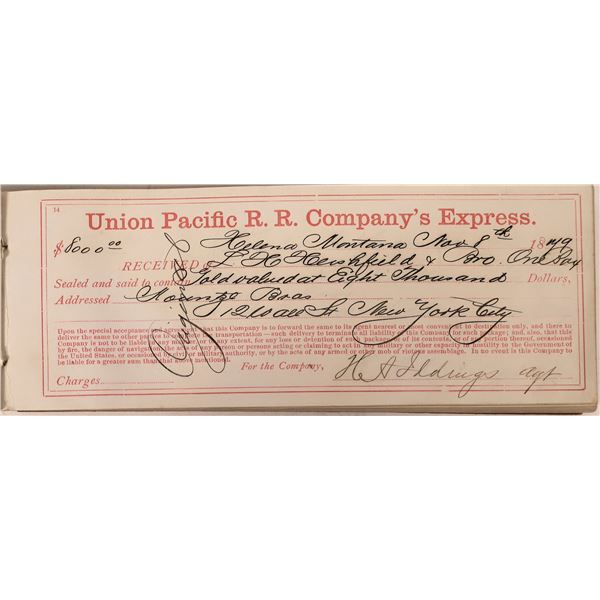 14
Union Pacific R. R. Company's Express.
$8000.00 Helena Montana Nov 8th 1879
RECEIVED of L. H. Hershfield & Bro. One Box
Sealed and said to contain Gold valued at Eight Thousand Dollars,
Addressed Kountze Bros
12 Wall St New York City
Upon the special acceptance and agreement that this Company is to forward the same to its agent nearest or most convenient to destination only, and there to
deliver the same to other parties to complete the transportation—such delivery to terminate all liability of this Company for such package; and, also, that this
Company is not to be liable in any manner or to any extent, for any loss or detention of such package, or of its contents, or of any portion thereof, occasioned
by the acts of God, or by any person or persons acting or claiming to act in any military or other capacity in hostility to the Government of
the United States, or occasioned by civil or military authority, or by the acts of any armed or any mob or riotous assemblage. In no event is this Company to
be liable for a greater sum than that above mentioned.
For the Company,
Charges
agt